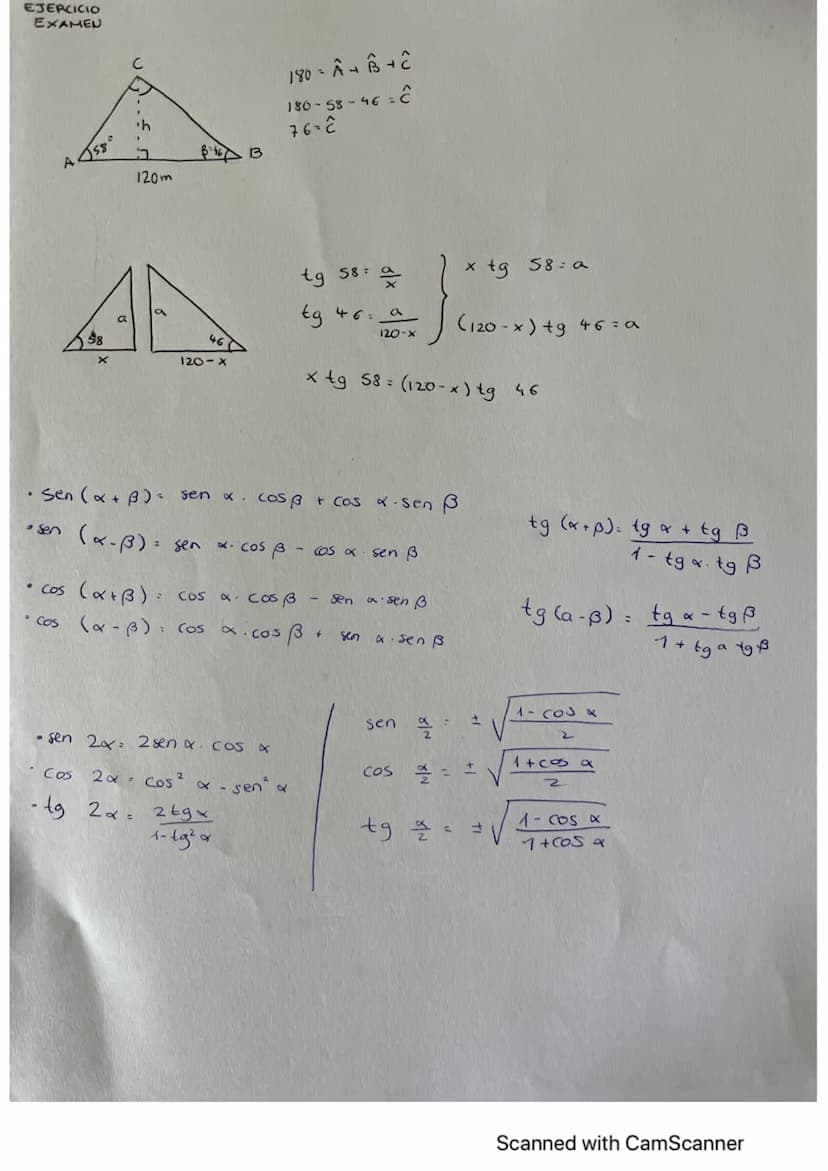 EJERCICIO
EXAMEN
C
h
A
58°
β=46
B
120m
180 = Â + B̂ + Ĉ
180 - 58 - 46 = Ĉ
76 = Ĉ
a
58
x
a
46
120-x
tg 58 = a/x
tg 46 = a/(120-x)
x tg 58 = a
(120-x) tg 46 = a
x tg 58 = (120-x) tg 46
• sen (α + β) = sen α . cos β + cos α . sen β
• sen (α - β) = sen α . cos β - cos α . sen β
• cos (α + β) = cos α . cos β - sen α . sen β
• cos (α - β) = cos α . cos β + sen α . sen β
tg (α + β) = (tg α + tg β)/(1 - tg α . tg β)
tg (a - β) = (tg α - tg β)/(1 + tg a tg β)
• sen 2α = 2 sen α . cos α
• cos 2α = cos² α - sen² α
• tg 2α = 2 tg α/(1 - tg² α)
sen α/2 = ± √((1 - cos α)/2)
cos α/2 = ± √((1 + cos α)/2)
tg α/2 = ± √((1 - cos α)/(1 + cos α))
Scanned with CamScanner